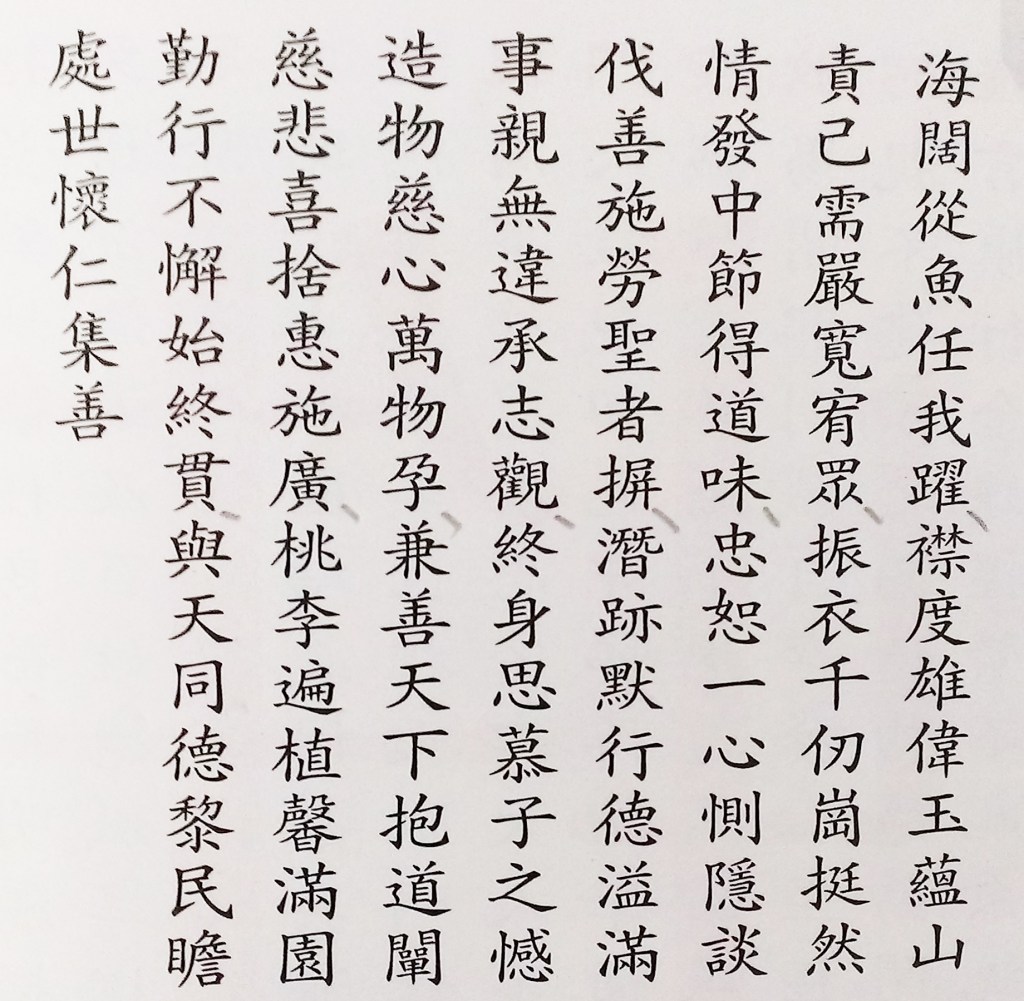 海闊從魚任我躍襟度雄偉玉蘊山
責己需嚴寬宥眾振衣千仞崗挺然
情發中節得道味忠恕一心惻隱談
伐善施勞聖者摒潛跡默行德溢滿
事親無違承志觀終身思慕子之憾
造物慈心萬物孕兼善天下抱道闡
慈悲喜捨惠施廣桃李遍植馨滿園
勤行不懈始終貫與天同德黎民瞻
處世懷仁集善